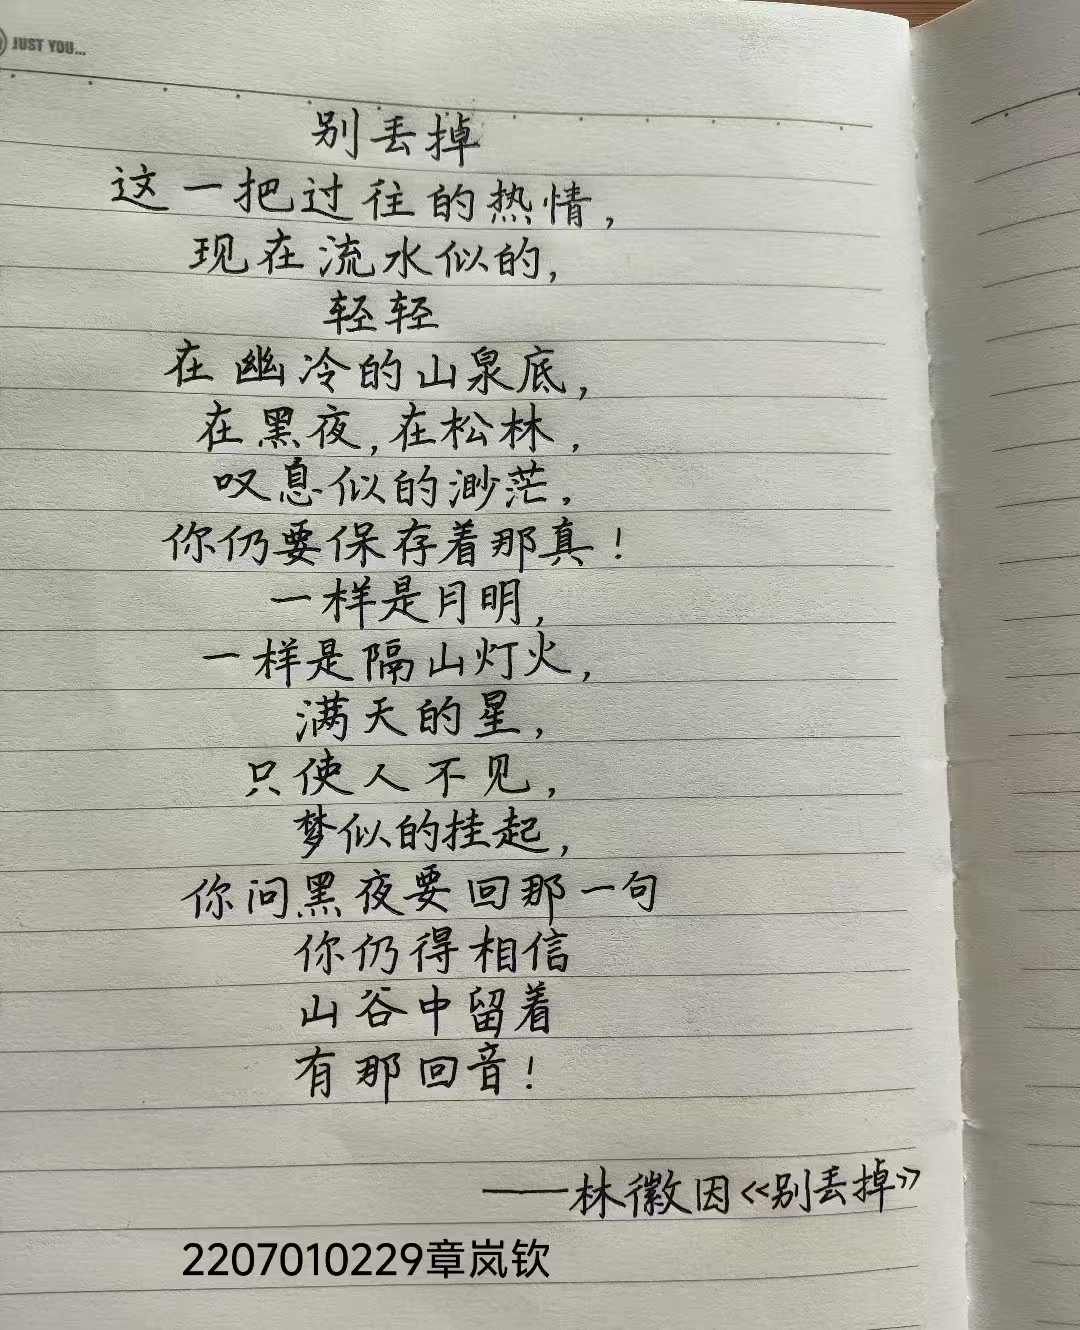 JUST YOU...
别丢掉
这一把过往的热情,
现在流水似的,
轻轻
在幽冷的山泉底,
在黑夜,在松林,
叹息似的渺茫,
你仍要保存着那真!
一样是月明,
一样是隔山灯火,
满天的星,
只使人不见,
梦似的挂起,
你问黑夜要回那一句
你仍得相信
山谷中留着
有那回音!
——林徽因《别丢掉》
2207010229章岚钦